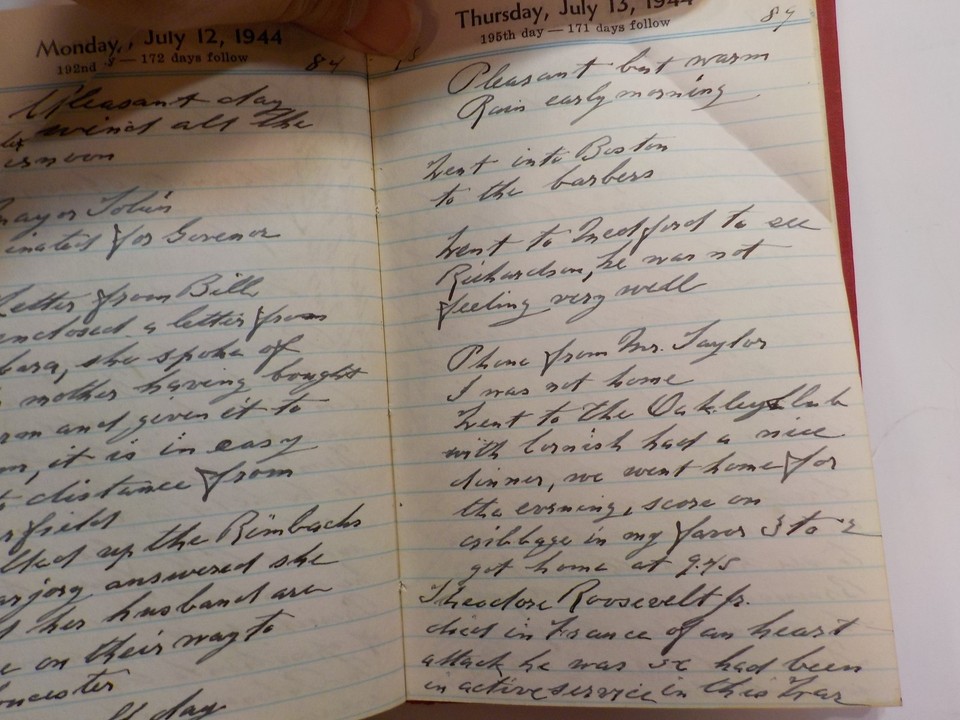 Monday, July 12, 1944
192nd — 172 days follow
84
Pleasant day
wind all the
ernoon
mayor Tobin
inated for Govenor
Letter from Bill,
enclosed a letter from
bara, she spoke of
mother having bought
and given it to
it is in easy
distance from
field
lled up the Rimbachs
arjory answered she
d her husband are
e on their way to
oucester
day
Thursday, July 13, 1944
195th day — 171 days follow
84
Pleasant but warm
Rain early morning
Went into Boston
to the barbers
Went to Medford to see
Richardson, he was not
feeling very well
Phone from Mr. Taylor
I was not home
Went to the Oakley Club
with Cornish had a nice
dinner, we went home for
the evening, score on
cribbage in my favor 3 to 2
got home at 9.45
Theodore Roosevelt Jr.
died in France of an heart
attack he was had been
in active service in this War